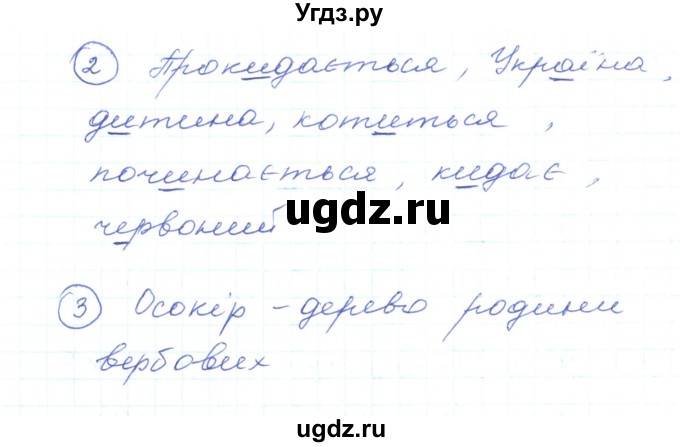 Угдз.ру
2 Прокидається, Україна,
дитина, котиться,
починається, кидає,
червоний
ugdz.ru
3 Осокір - дерево родини
вербових
ugdz.ru